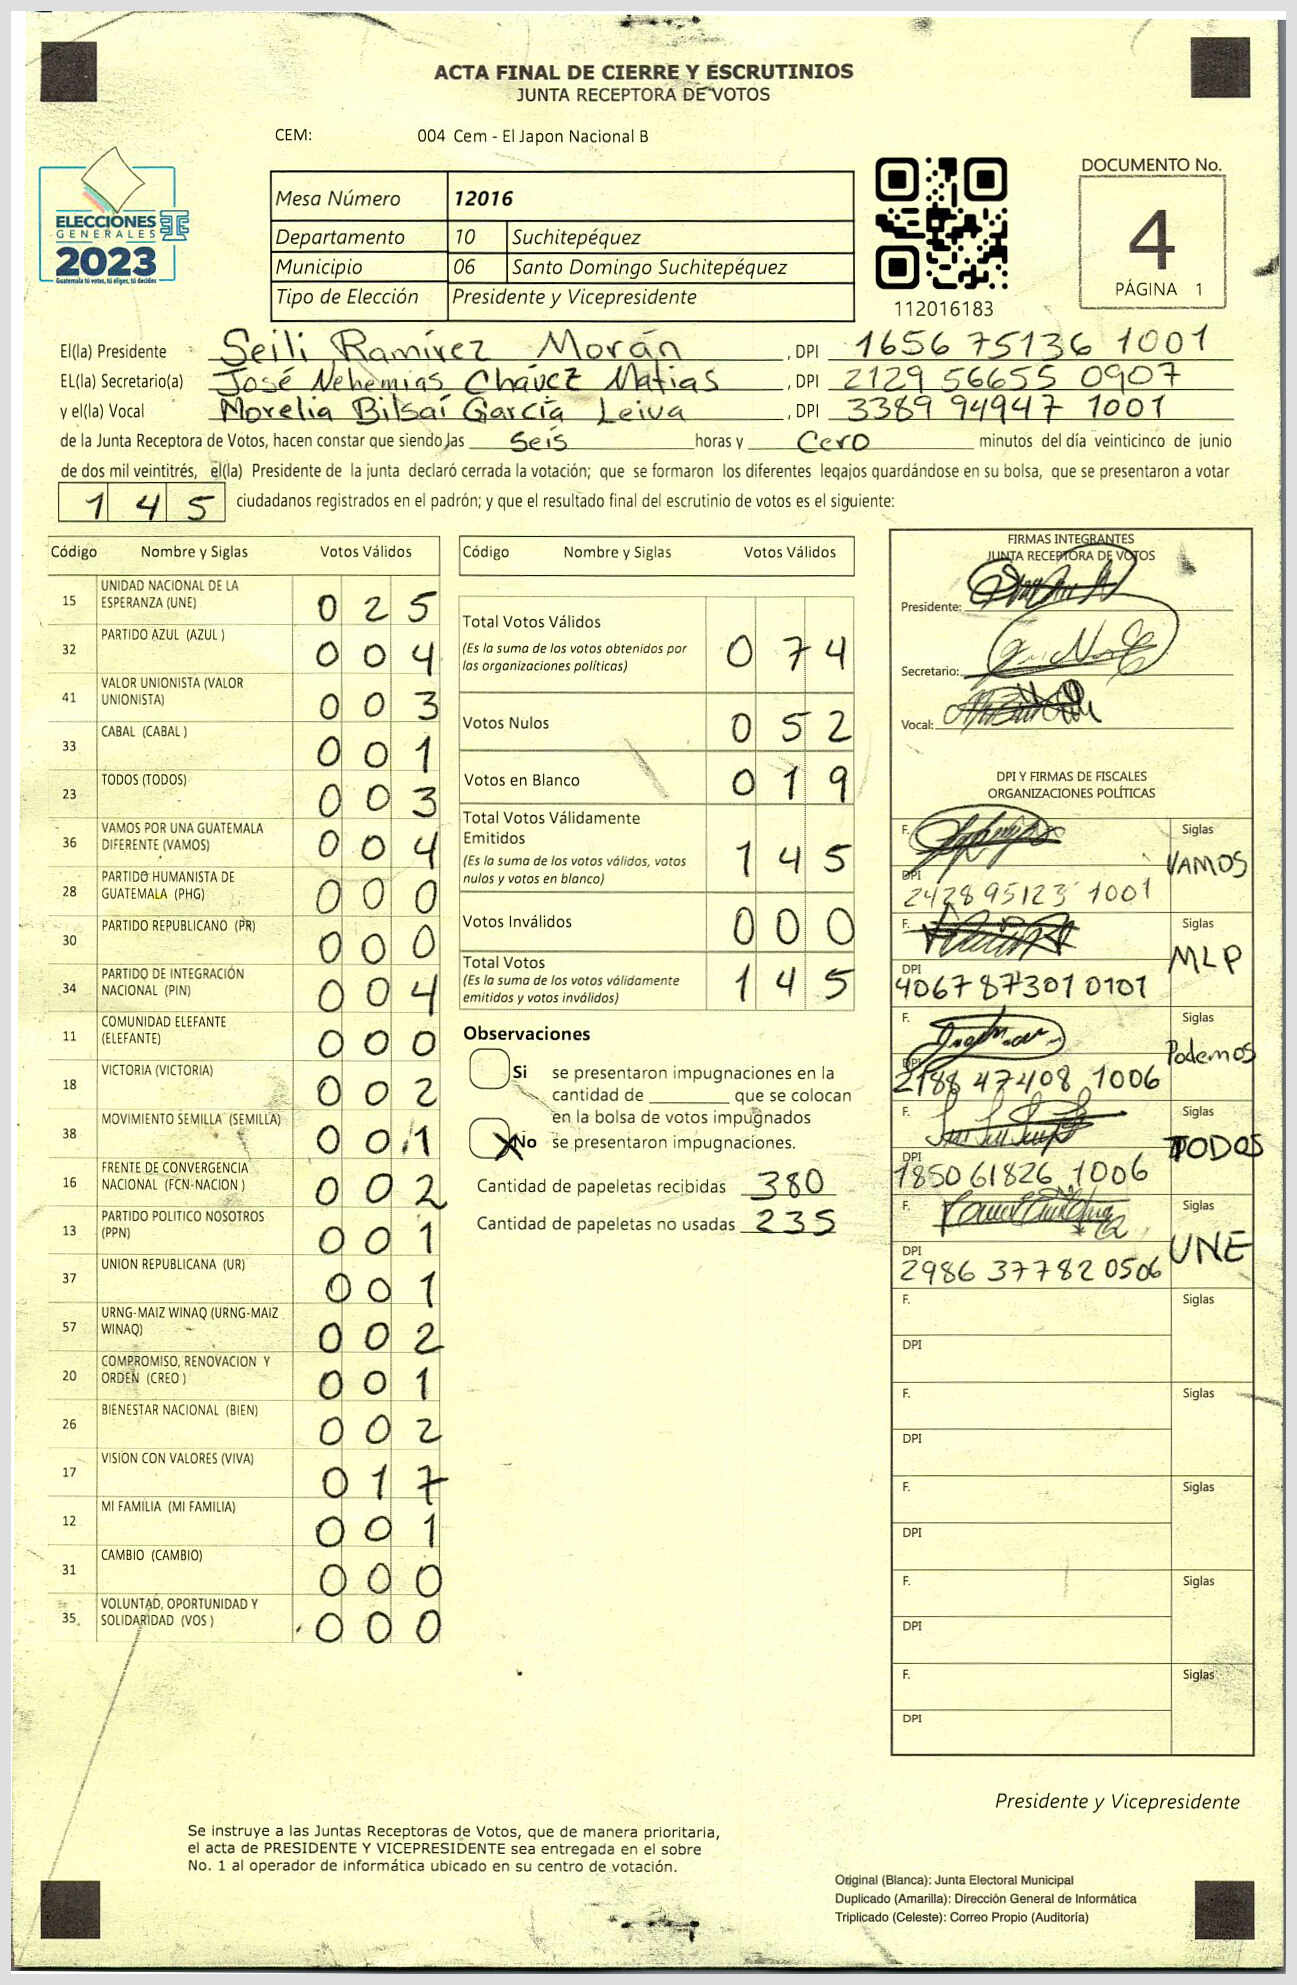 ACTA FINAL DE CIERRE Y ESCRUTINIOS
JUNTA RECEPTORA DE VOTOS
CEM: 004 Cem - El Japon Nacional B
ELECCIONES
GENERALES
2023
Guatemala tú votas, tú eliges, tú decides
Mesa Número 12016
Departamento 10 Suchitepéquez
Municipio 06 Santo Domingo Suchitepéquez
Tipo de Elección Presidente y Vicepresidente
112016183
DOCUMENTO No.
4
PÁGINA 1
El(la) Presidente Seili Ramírez Morán, DPI 1656 75136 1001
EL(la) Secretario(a) José Nehemias Chávez Matias, DPI 2129 56655 0907
y el(la) Vocal Morelia Bilsaí García Leiva, DPI 3389 94947 1001
de la Junta Receptora de Votos, hacen constar que siendo las Seis horas y Cero minutos del día veinticinco de junio
de dos mil veintitrés, el(la) Presidente de la junta declaró cerrada la votación; que se formaron los diferentes legajos guardándose en su bolsa, que se presentaron a votar
1 4 5 ciudadanos registrados en el padrón; y que el resultado final del escrutinio de votos es el siguiente:
Código Nombre y Siglas Votos Válidos
15 UNIDAD NACIONAL DE LA ESPERANZA (UNE) 0 2 5
32 PARTIDO AZUL (AZUL ) 0 0 4
41 VALOR UNIONISTA (VALOR UNIONISTA) 0 0 3
33 CABAL (CABAL ) 0 0 1
23 TODOS (TODOS) 0 0 3
36 VAMOS POR UNA GUATEMALA DIFERENTE (VAMOS) 0 0 4
28 PARTIDO HUMANISTA DE GUATEMALA (PHG) 0 0 0
30 PARTIDO REPUBLICANO (PR) 0 0 0
34 PARTIDO DE INTEGRACIÓN NACIONAL (PIN) 0 0 4
11 COMUNIDAD ELEFANTE (ELEFANTE) 0 0 0
18 VICTORIA (VICTORIA) 0 0 2
38 MOVIMIENTO SEMILLA (SEMILLA) 0 0 1
16 FRENTE DE CONVERGENCIA NACIONAL (FCN-NACION ) 0 0 2
13 PARTIDO POLITICO NOSOTROS (PPN) 0 0 1
37 UNION REPUBLICANA (UR) 0 0 1
57 URNG-MAIZ WINAQ (URNG-MAIZ WINAQ) 0 0 2
20 COMPROMISO, RENOVACION Y ORDEN (CREO ) 0 0 1
26 BIENESTAR NACIONAL (BIEN) 0 0 2
17 VISION CON VALORES (VIVA) 0 1 7
12 MI FAMILIA (MI FAMILIA) 0 0 1
31 CAMBIO (CAMBIO) 0 0 0
35 VOLUNTAD, OPORTUNIDAD Y SOLIDARIDAD (VOS ) 0 0 0
Código Nombre y Siglas Votos Válidos
Total Votos Válidos 0 7 4
(Es la suma de los votos obtenidos por
las organizaciones políticas)
Votos Nulos 0 5 2
Votos en Blanco 0 1 9
Total Votos Válidamente
Emitidos 1 4 5
(Es la suma de los votos válidos, votos
nulos y votos en blanco)
Votos Inválidos 0 0 0
Total Votos 1 4 5
(Es la suma de los votos válidamente
emitidos y votos inválidos)
Observaciones
Si se presentaron impugnaciones en la
cantidad de ________ que se colocan
en la bolsa de votos impugnados
X No se presentaron impugnaciones.
Cantidad de papeletas recibidas 380
Cantidad de papeletas no usadas 235
FIRMAS INTEGRANTES
JUNTA RECEPTORA DE VOTOS
Presidente:
Secretario:
Vocal:
DPI Y FIRMAS DE FISCALES
ORGANIZACIONES POLÍTICAS
F. Siglas VAMOS
DPI 2428 95123 1001
F. Siglas MLP
DPI 4067 87301 0101
F. Siglas Podemos
DPI 2188 47408 1006
F. Siglas TODOS
DPI 1850 61826 1006
F. Siglas UNE
DPI 2986 37782 0506
F. Siglas
DPI
F. Siglas
DPI
F. Siglas
DPI
F. Siglas
DPI
F. Siglas
DPI
Presidente y Vicepresidente
Se instruye a las Juntas Receptoras de Votos, que de manera prioritaria,
el acta de PRESIDENTE Y VICEPRESIDENTE sea entregada en el sobre
No. 1 al operador de informática ubicado en su centro de votación.
Original (Blanca): Junta Electoral Municipal
Duplicado (Amarilla): Dirección General de Informática
Triplicado (Celeste): Correo Propio (Auditoría)